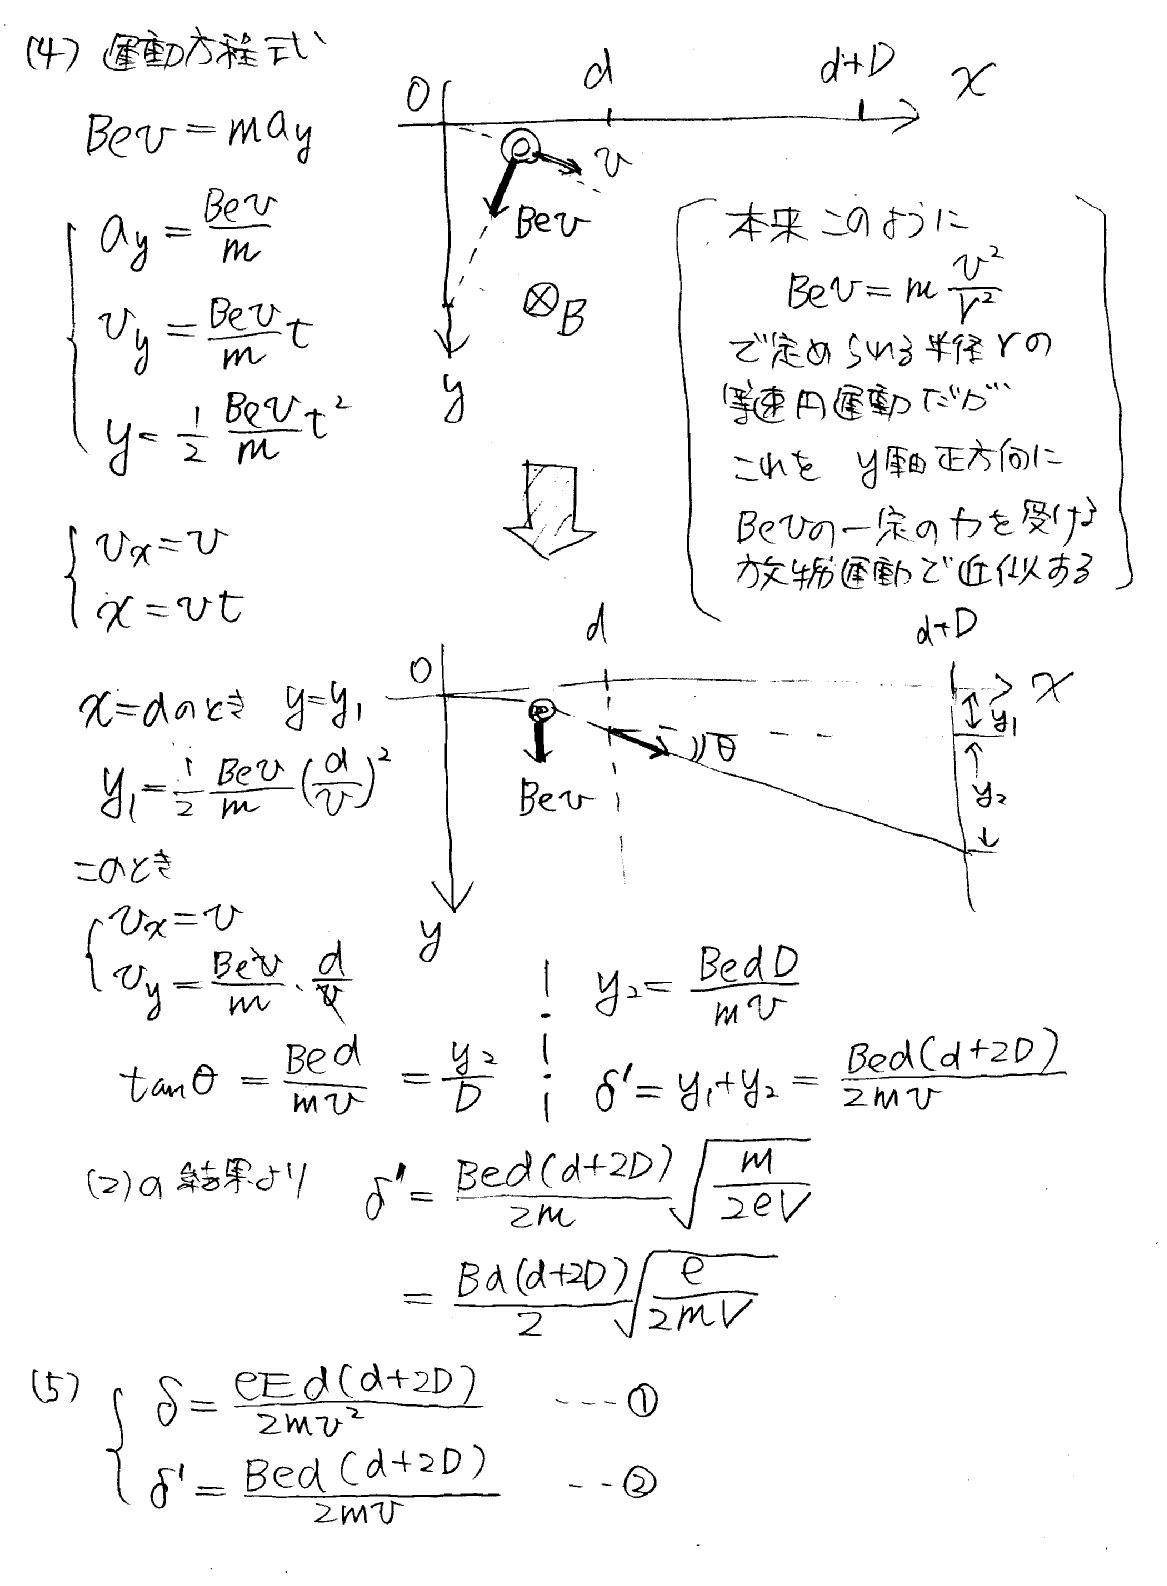 (4) 運動方程式
Bev = may
ay = Bev/m
vy = Bev/m t
y = 1/2 Bev/m t²
vx = v
x = vt
O d d+D x
v
Bev
⊗B
y
本来このように
Bev = m v²/r²
で定められる半径rの
等速円運動だが
これを y軸正方向に
Bevの一定の力を受ける
放物運動で近似する
x=dのとき y=y₁
y₁ = 1/2 Bev/m (d/v)²
このとき
vx = v
vy = Bev/m · d/v
tanθ = Bed/mv = y₂/D
O d d+D x
y₁
θ
y₂
Bev
y
y₂ = BedD/mv
δ' = y₁+y₂ = Bed(d+2D)/2mv
(2)の結果より δ' = Bed(d+2D)/2m √(m/2eV)
= Bd(d+2D)/2 √(e/2mV)
(5) δ = eEd(d+2D)/2mv² ---①
δ' = Bed(d+2D)/2mv ---②